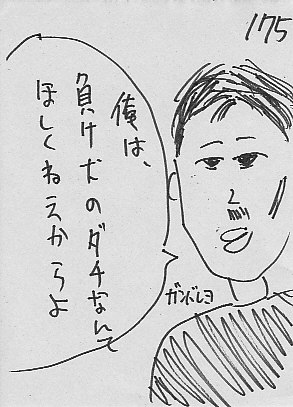 175
俺は、
負け犬のダチなんて
ほしくねえからよ
ガンドレヨ